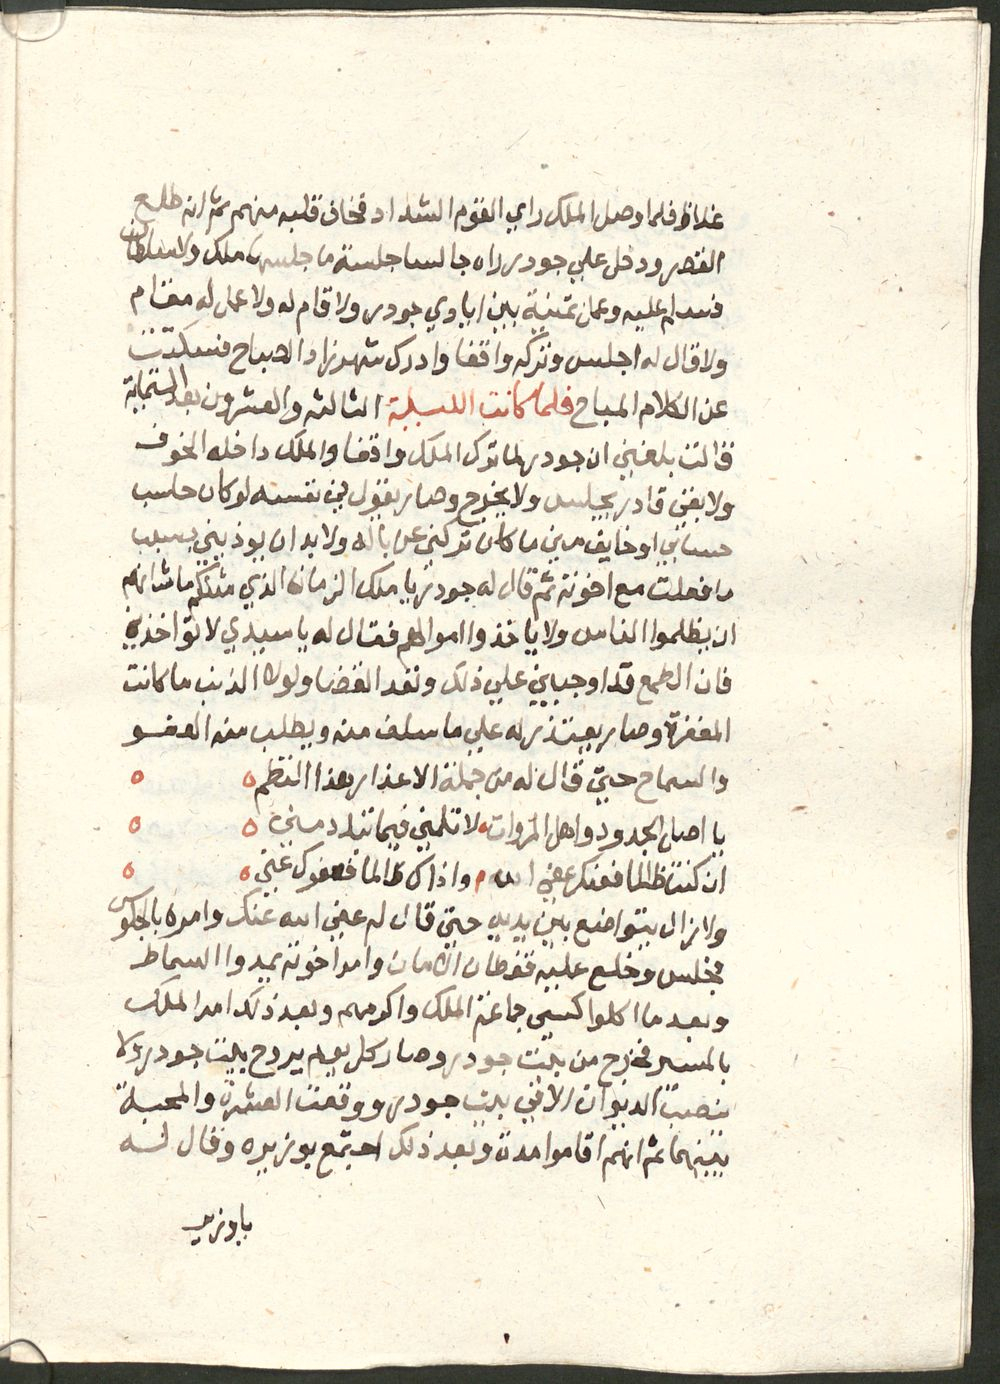 غلاظ فلما وصل الملك راي القوم الشداد فخاف قلبه منهم ثم انه طلع
القصر ودخل علي جودر راه جالسا جلسة ما جلسها ملك ولا سلطان
فسلم عليه وعمل تمنية بين ايادي جودر ولا قام له ولا عمل له مقام
ولا قال له اجلس وتركه واقفا وادرك شهرزاد الصباح فسكتت
عن الكلام المباح فلما كانت الليلية الثالثه والعشرون بعد الستماية
قالت بلغني ان جودر لما ترك الملك واقفا والملك داخله الخوف
ولا بقي قادر يجلس ولا يخرج وصار يقول في نفسه لو كان حاسب
حسابي او خايف مني ما كان تركني عن باله ولا بد ان يوذيني بسبب
ما فعلت مع اخوته ثم قال له جودر يا ملك الزمان الذي مثلكم ما شانهم
ان يظلموا الناس ولا ياخذوا اموالهم فقال له يا سيدي لا تواخذني
فان الطمع قد اوجباني علي ذلك ونفد القضا ولولا الذنب ما كانت
المغفرة وصار يعتذر له علي ما سلف منه ويطلب منه العفو
والسماح حتي قال له من جملة الاعذار هذا النظم
يا اصيل الجدود واهل المروات لا تلمني فيما تبادر مني
ان كنت ظالما فعنك عفي الله واذا كنت ظالما فعفوك عني
ولا زال يتواضع بين يديه حتي قال له عفي الله عنك وامره بالجلوس
فجلس وخلع عليه قفطان الامان وامر اخوته يمدوا السماط
وبعد ما اكلوا كسي جماعة الملك واكرمهم وبعد ذلك امر الملك
بالمسير فخرج من بيت جودر وصار كل يوم يروح بيت جودر ولا
ينصب الديوان الا في بيت جودر ووقعت العشرة والمحبة
بينهما ثم انهم اقاموا مدة وبعد ذلك اجتمع بوزيره وقال له
يا وزير